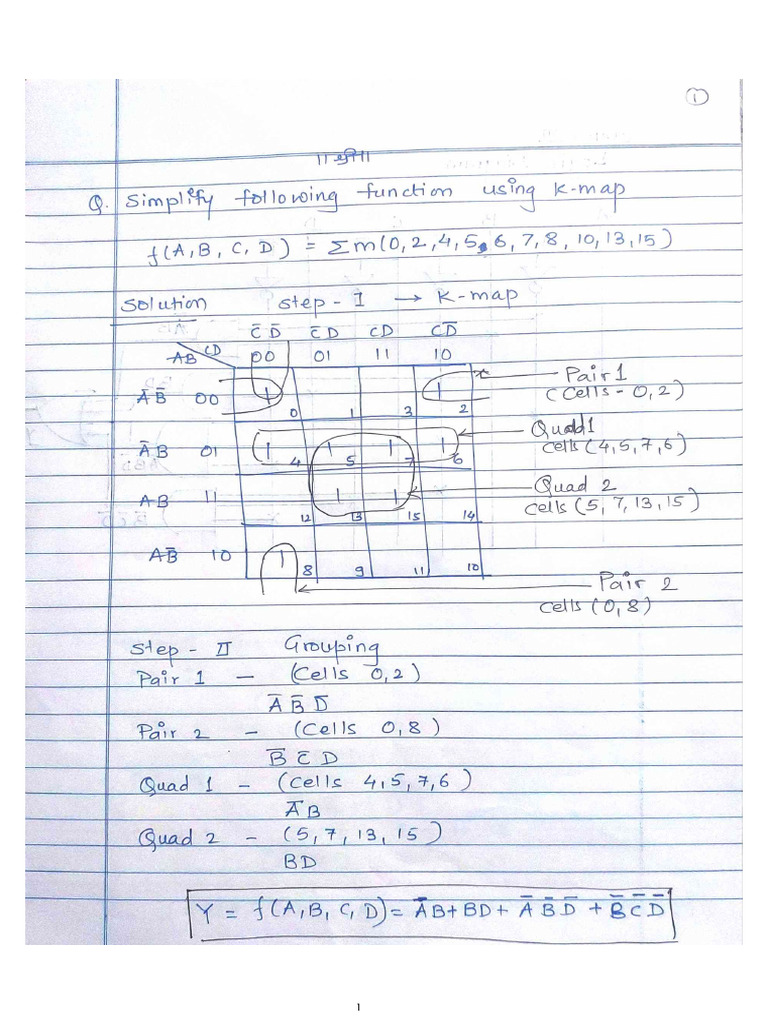 1
॥श्री॥
Q. Simplify following function using K-map
f(A, B, C, D) = Σm(0, 2, 4, 5, 6, 7, 8, 10, 13, 15)
Solution Step - I → K-map
C̅ D̅ C̅ D CD CD̅
AB CD 00 01 11 10
A̅ B̅ 00 1 0 1 3 1 2 Pair 1 (Cells - 0, 2)
A̅ B 01 1 4 1 5 1 7 1 6 Quad 1 cells (4, 5, 7, 6)
AB 11 12 1 13 1 15 14 Quad 2 cells (5, 7, 13, 15)
AB̅ 10 1 8 9 11 10
Pair 2
cells (0, 8)
Step - II Grouping
Pair 1 - (Cells 0, 2)
A̅ B̅ D̅
Pair 2 - (Cells 0, 8)
B̅ C̅ D
Quad 1 - (Cells 4, 5, 7, 6)
A̅ B
Quad 2 - (5, 7, 13, 15)
BD
Y = f(A, B, C, D) = A̅B + BD + A̅ B̅ D̅ + B̅ C̅ D̅
1